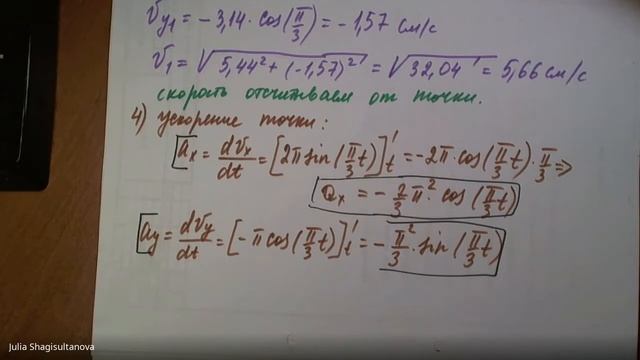 Vy₁ = -3,14 · cos(π/3) = -1,57 см/с
V₁ = √(5,44² + (-1,57)²) = √(32,04) = 5,66 см/с
скорость отсчитываем от точки.
4) ускорение точки:
ax = dVx/dt = [2π sin(π/3 t)]'t = -2π · cos(π/3 t) · π/3 ⇒
ax = -2/3 π² · cos(π/3 t)
ay = dVy/dt = [-π cos(π/3 t)]'t = -π²/3 · sin(π/3 t)
Julia Shagisultanova